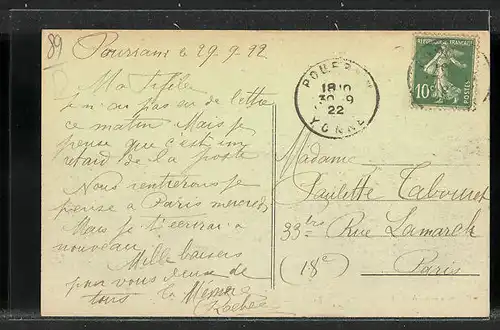 89
Pourrain le 29-9-22
Ma
n'ai pas eu de lettre
ce matin Mais je
pense que c'est un
retard de la poste
Nous rentrerons je
pense à Paris mercredi
Mais je t'écrirai à
nouveau
Mille baisers
pour vous deux de
tous la
POURRAIN
18H0
30-9
22
YONNE
REPUBLIQUE FRANÇAISE
10c
Madame
Paulette Tabouret
33 bis Rue Lamarck
(18e)
Paris